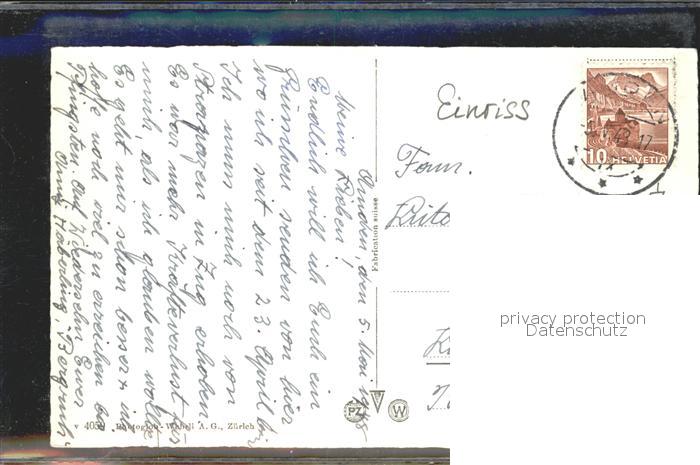 Amden, den 5. Mai 1948
Meine Lieben!
Endlich will ich Euch ein
Grüsschen senden von hier
wo ich seit dem 23. April bin
Ich muss mich noch von
Strapazen in Zug erholen
Es war mehr Kräfteverlust für
mich, als ich glauben wollte
Es geht mir schon besser & ich
hoffe noch viel zu erreichen bis
Pfingsten. Auf Wiedersehn Euer
Häberling, Bergruh
Fabrication suisse
v 4059 Photoglob-Wehrli A. G., Zürich
PZ W
Einriss
Fam.
10 HELVETIA
privacy protection
Datenschutz